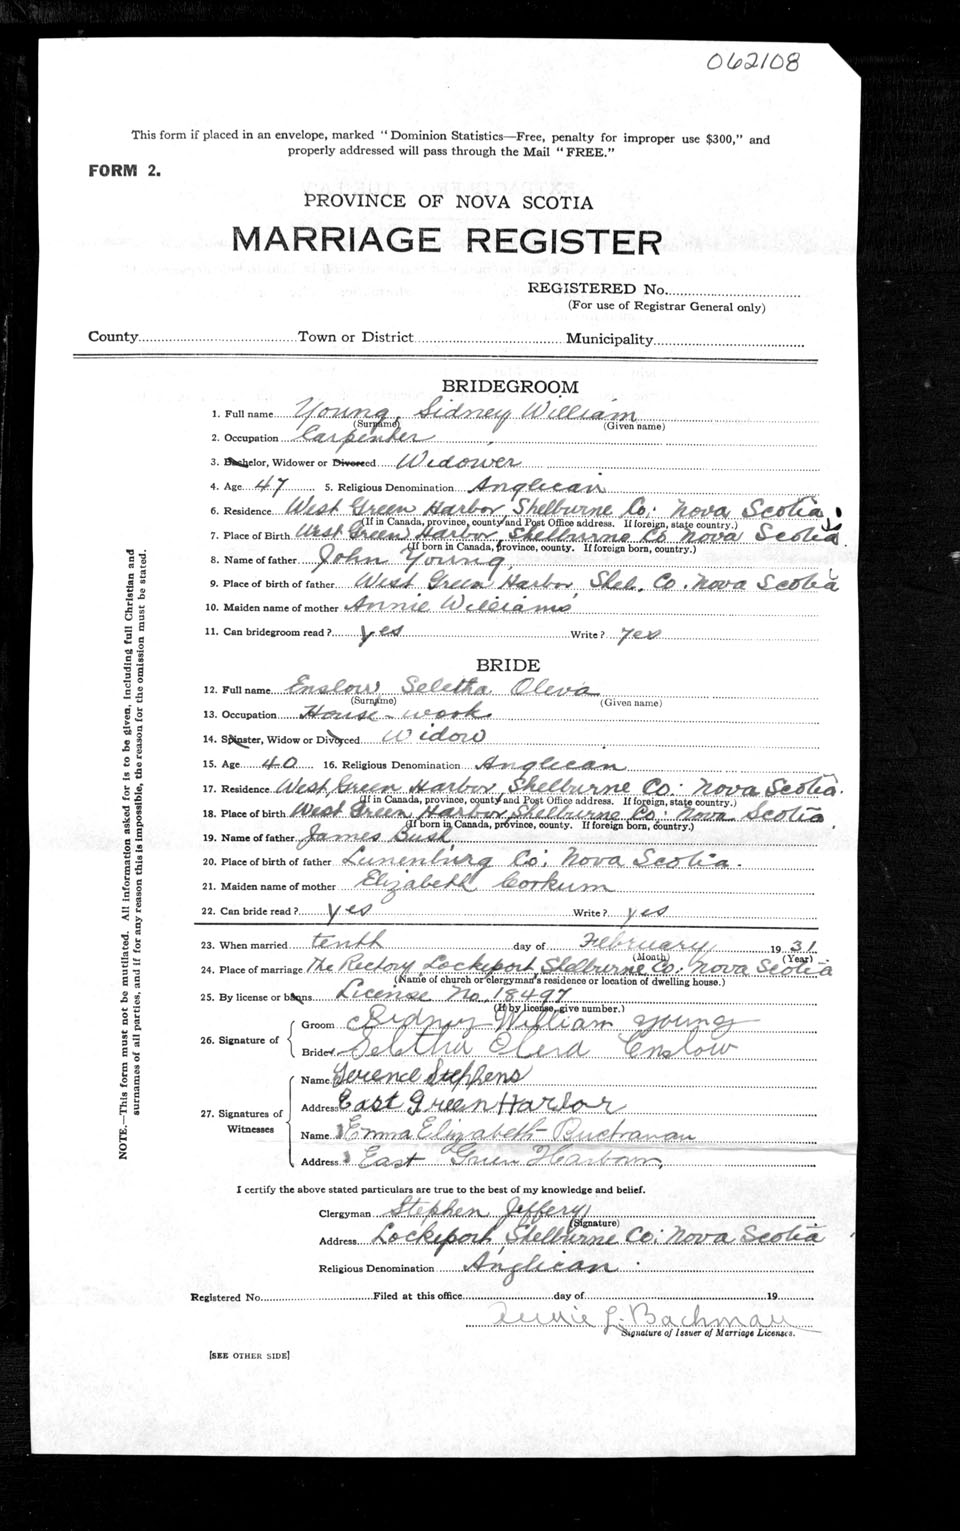 062108
This form if placed in an envelope, marked "Dominion Statistics—Free, penalty for improper use $300," and
properly addressed will pass through the Mail "FREE."
FORM 2.
PROVINCE OF NOVA SCOTIA
MARRIAGE REGISTER
REGISTERED No.
(For use of Registrar General only)
County Town or District Municipality
BRIDEGROOM
1. Full name Young, Sidney William
(Surname) (Given name)
2. Occupation Carpenter
3. Bachelor, Widower or Divorced Widower
4. Age 47 5. Religious Denomination Anglican
6. Residence West Green Harbor, Shelburne Co: Nova Scotia
(If in Canada, province, county and Post Office address. If foreign, state country.)
7. Place of Birth West Green Harbor, Shelburne Co Nova Scotia
(If born in Canada, province, county. If foreign born, country.)
8. Name of father John Young
9. Place of birth of father West Green Harbor, Shel. Co: Nova Scotia
10. Maiden name of mother Annie Williams
11. Can bridegroom read? yes Write? yes
BRIDE
12. Full name Enslow, Seletha Oleva
(Surname) (Given name)
13. Occupation House-work
14. Spinster, Widow or Divorced Widow
15. Age 40 16. Religious Denomination Anglican
17. Residence West Green Harbor, Shelburne Co: Nova Scotia.
(If in Canada, province, county and Post Office address. If foreign, state country.)
18. Place of birth West Green Harbor, Shelburne Co: Nova Scotia
(If born in Canada, province, county. If foreign born, country.)
19. Name of father James Bush
20. Place of birth of father Lunenburg Co; Nova Scotia.
21. Maiden name of mother Elizabeth Corkum
22. Can bride read? yes Write? yes
23. When married tenth day of February 1931
(Month) (Year)
24. Place of marriage The Rectory, Lockeport, Shelburne Co: Nova Scotia
(Name of church or clergyman's residence or location of dwelling house.)
25. By license or banns License No. 18497
(If by license, give number.)
26. Signature of
Groom Sidney William Young
Bride Seletha Oleva Enslow
27. Signatures of
Witnesses
Name Terence Stephens
Address East Green Harbor
Name Emma Elizabeth Buchanan
Address East Green Harbour,
I certify the above stated particulars are true to the best of my knowledge and belief.
Clergyman Stephen Jeffery
(Signature)
Address Lockeport, Shelburne Co: Nova Scotia
Religious Denomination Anglican
Registered No. Filed at this office day of 19
L. Bachman
Signature of Issuer of Marriage Licenses.
[SEE OTHER SIDE]
NOTE.—This form must not be mutilated. All information asked for is to be given, including full Christian and
surnames of all parties, and if for any reason this is impossible, the reason for the omission must be stated.